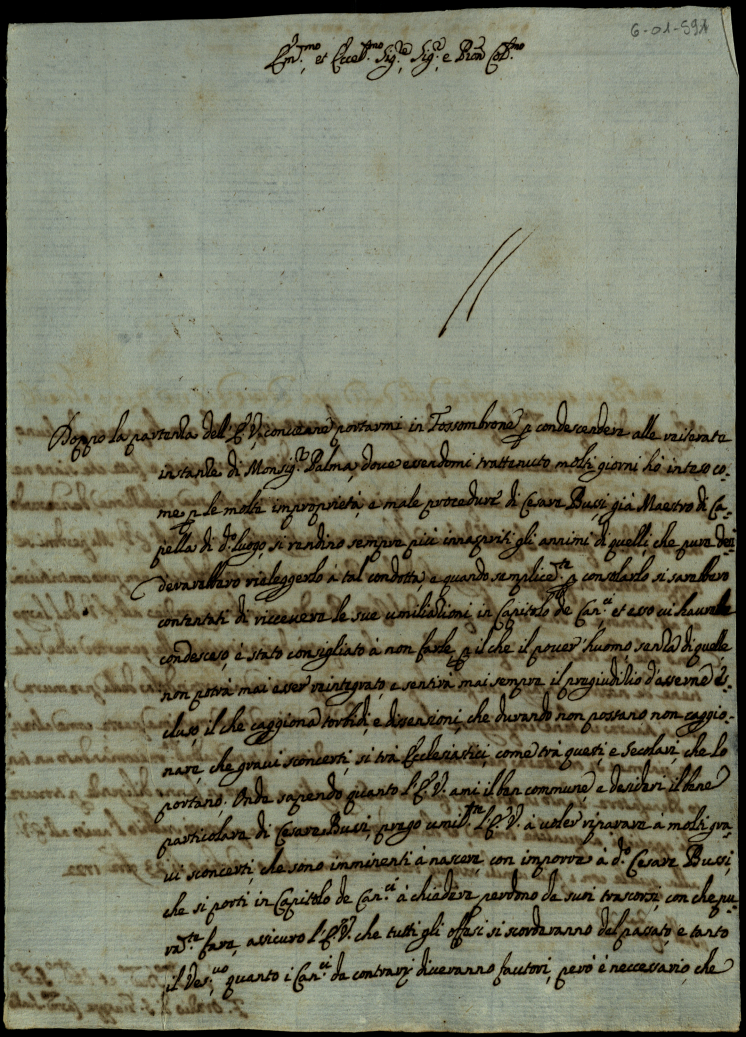 6-01-591
Em.mo et Eccel.mo Sig.re Sig.re e Pron Col.mo
Doppo la partenza dell'E.V. convenne portarmi in Fossombrone p condescendere alle reiterate
instanze di Monsig.r Palma, dove essendomi trattenuto molti giorni hò inteso co-
me p le molte improprietà, e male procedure di Cesare Bussi, già Maestro di Ca-
pella di d.o luogo, si rendino sempre più innaspriti gli annimi di quelli, che pure
derarebbero rieleggerlo à tal condotta, e quando semplice.te p consolarlo si sarebbero
contentati di riccevere le sue umiliazioni in Capitolo de Can.ci et esso vi haurebbe
condesceso, è stato consigliato à non farle, p il che il pover' huomo senza di quelle
non potrà mai esser reintegrato, e sentirà mai sempre il pregiudizio d'esserne es-
cluso, il che caggiona torbidi, e dissensioni, che durando non possano non caggio-
nare, che gravi sconcerti, si trà Ecclesiastici, come trà questi, e Secolari, che lo
portano. Onde sapendo quanto l'E.V. ami il ben commune, e desideri il bene
particolare di Cesare Bussi, prego umil.te l'E.V. à voler riparare à molti gra-
vi sconcerti, che sono imminenti à nascere, con imporre à d.o Cesare Bussi,
che si porti in Capitolo de Can.ci à chiedere perdono de suoi trascorsi, con che
fare, assicuro l'E.V. che tutti gli offesi si scorderanno del passato, e tanto
il Ves.vo quanto i Can.ci da contrarij diveranno fautori, però è neccessario, che